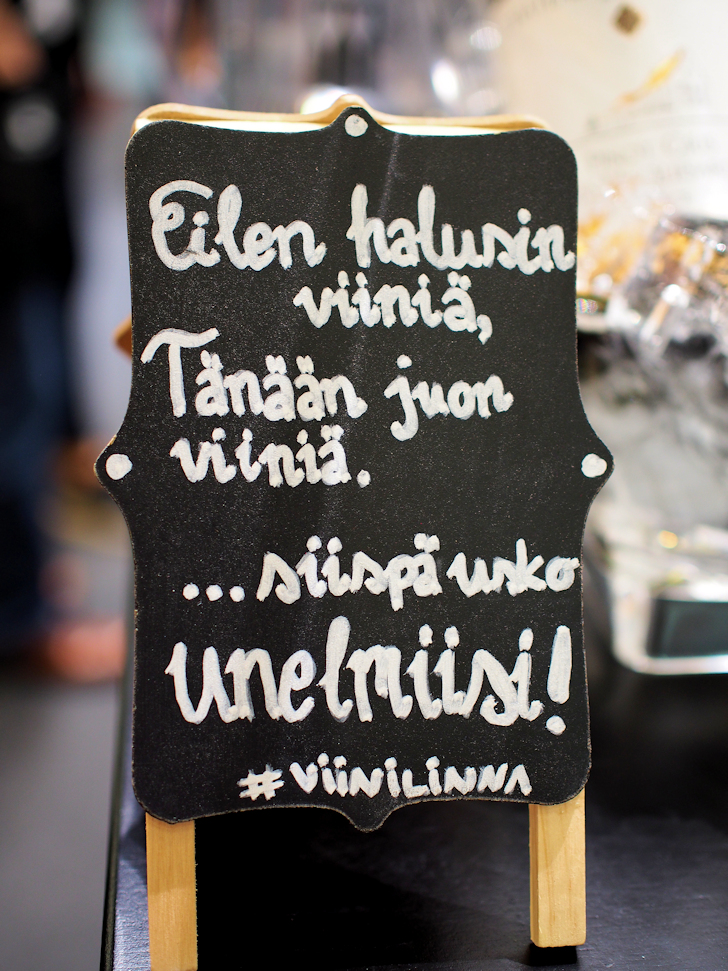 Eilen halusin
viiniä,
Tänään juon
viiniä.
...siispä usko
unelmiisi!
#VIINILINNA